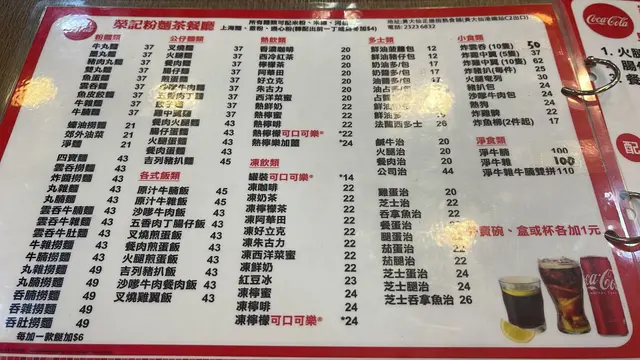 榮記粉麵茶餐廳
所有麵類可配米粉、朱邊、河粉
上海麵、意粉、通心粉(轉配出前一丁或公仔麵加$4)
地址:黃大仙正德街熟食舖(黃大仙港鐵站C2出口)
電話: 2323 6832
粉麵類
牛丸麵 37
墨丸麵 37
豬肉丸麵 37
雙丸麵 37
魚蛋麵 37
雲吞麵 37
魚皮餃麵 37
牛雜麵 37
牛腩麵 37
蠔油撈麵 21
郊外油菜 21
淨麵 21
四寶麵 43
雲吞撈麵 43
炸醬撈麵 43
丸雜麵 43
丸腩麵 43
雲吞牛腩麵 43
雲吞牛雜麵 43
牛雜撈麵 43
牛腩撈麵 43
丸雜撈麵 49
丸腩撈麵 49
吞腩撈麵 49
吞雜撈麵 49
吞肚撈麵 49
每加一款餸加$6
公仔麵類
叉燒麵 37
火腿麵 37
餐肉麵 37
腸仔麵 37
雞蛋麵 37
沙嗲牛肉麵 37
五香肉丁麵 37
餃子麵 37
雞中翼麵 37
餐肉火腿麵 43
腸仔蛋麵 43
火腿蛋麵 43
餐肉蛋麵 43
吉列豬扒麵 43
各式飯類
原汁牛腩飯 45
原汁牛雜飯 45
沙嗲牛肉飯 43
五香肉丁腸仔飯 43
叉燒煎蛋飯 43
餐肉煎蛋飯 43
火腿煎蛋飯 43
吉列豬扒飯 43
沙嗲牛肉餐肉飯 43
叉燒雞翼飯 43
熱飲類
香濃咖啡 20
西冷紅茶 20
檸檬茶 20
阿華田 20
好立克 20
朱古力 20
西洋菜蜜 20
熱鮮奶 22
熱檸蜜 22
熱檸啡 22
熱檸可口可樂® *22
熱檸樂加薑 *24
凍飲類
罐裝可口可樂® *14
凍咖啡 22
凍奶茶 22
凍檸檬茶 22
凍華田 22
凍好立克 22
凍朱古力 22
凍西洋菜蜜 22
凍鮮奶 22
紅豆冰 23
凍檸蜜 24
凍檸啡 24
凍檸檬可口可樂® *24
多士類
鮮油菠蘿包 12
鮮油豬仔包 12
鮮油多 12
奶醬多 12
油占多 12
占醬多 12
鮮奶多 12
鮮油多 12
法蘭西多士 26
鹹牛治 20
火腿治 20
餐肉治 20
公司治 44
雞蛋治 20
芝士治 22
吞拿魚治 22
餐蛋治 22
腿蛋治 22
茄蛋治 22
茄腿治 22
芝士蛋治 24
芝士腿治 24
芝士吞拿魚治 26
小食類
炸雲吞 (10隻) 50
炸雞中翼 (10隻) 62
炸雞中翼 (5隻) 37
炸雞扒(每件) 25
火腿奄列 30
豬扒包 24
炸魚柳包 24
熱狗 24
炸雞脾 22
炸魚柳(2件起) 17
淨食類
淨牛腩 100
淨牛雜 100
淨牛雜牛腩雙拼 110
外賣碗、盒或杯各加1元
Coca-Cola